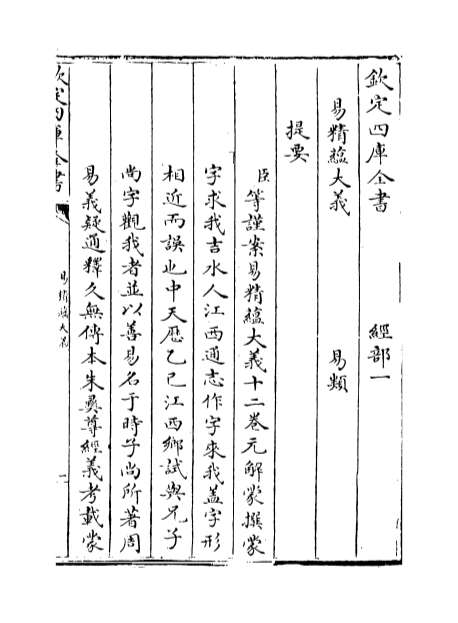 欽定四庫全書　經部一
易精蘊大義　易類
提要
臣等謹案易精蘊大義十二卷元解蒙撰蒙
字求我吉水人江西通志作字來我蓋字形
相近而誤也中天歷乙巳江西鄉試與兄子
尚字觀我者並以善易名于時子尚所著周
易義疑通釋久無傳本朱彞尊經義考載蒙
欽定四庫全書
易精蘊大義
一